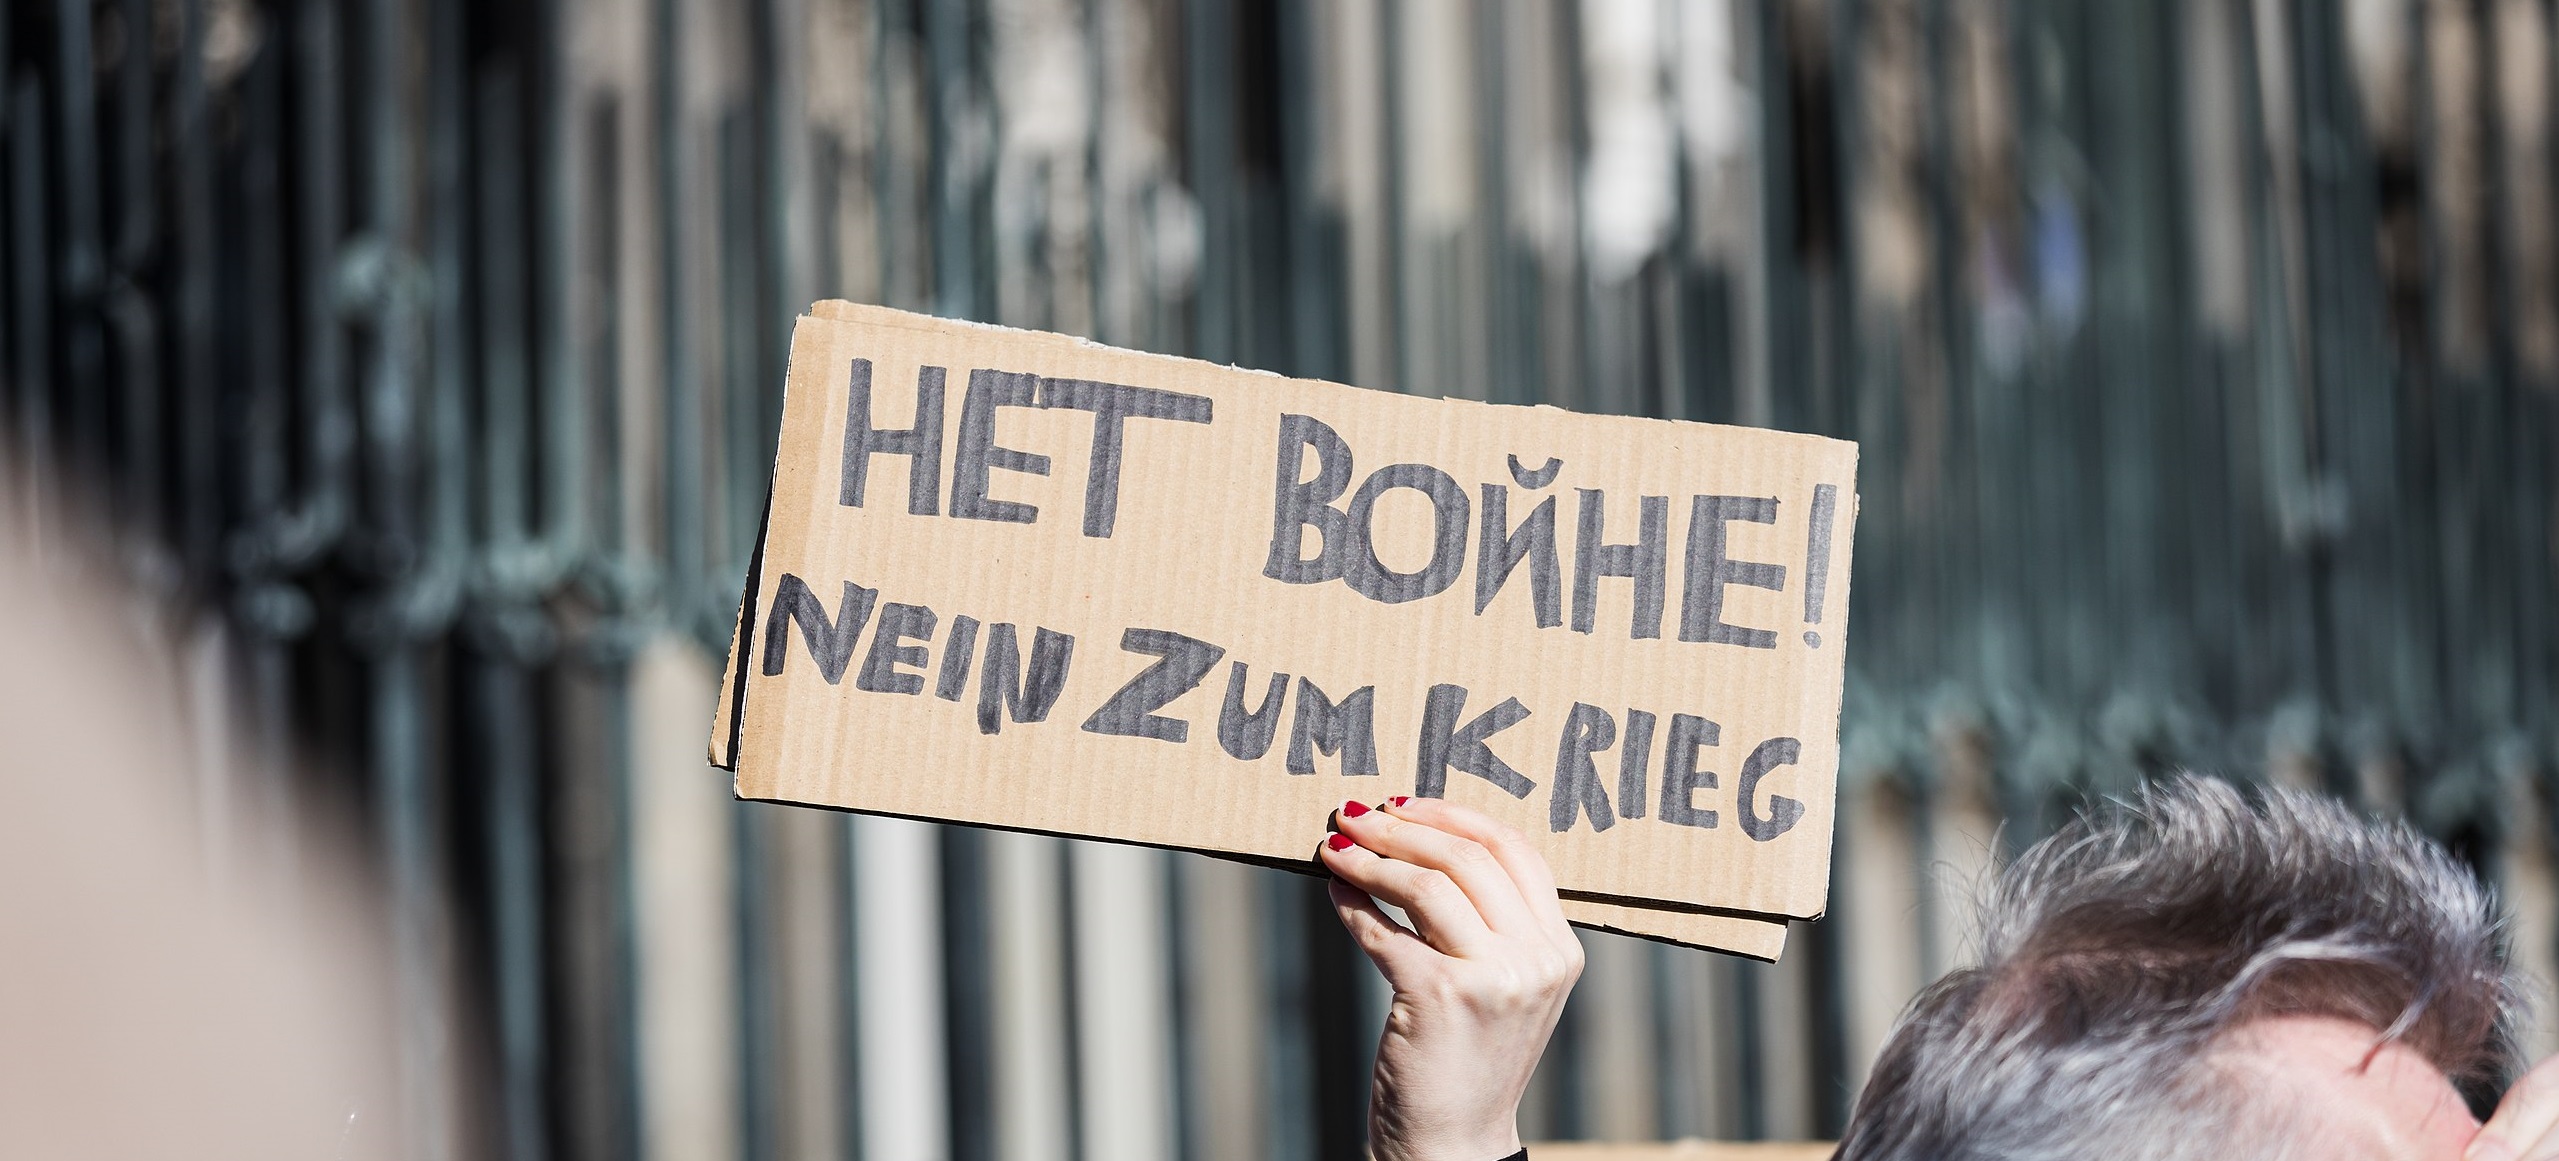 НЕТ ВОЙНЕ!
NEIN ZUM KRIEG